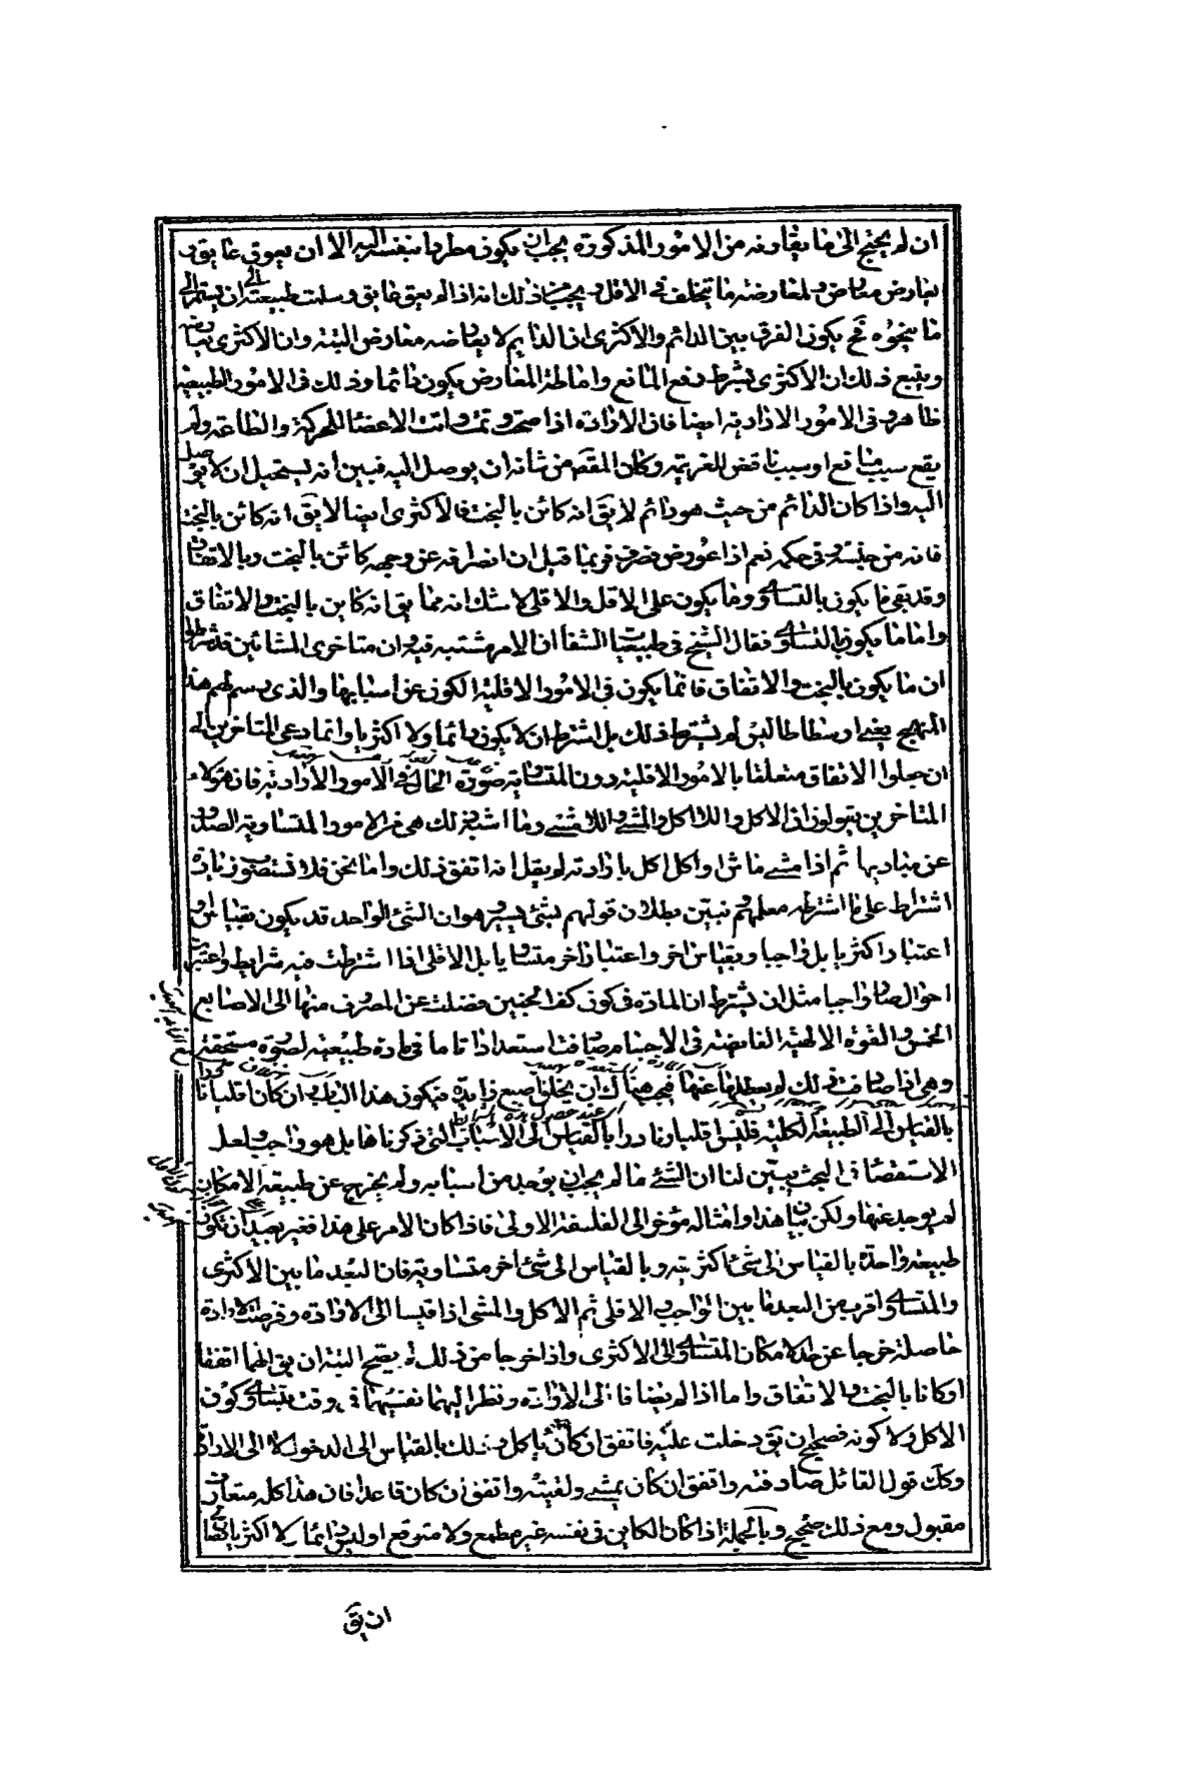 ان لم يحتج الى ما يقارنه من الامور المذكورة يجب ان يكون مطردا بنفسه اليه الا ان يعوق عايق و
يعارض معارض ولمعارضته ما يتخلف في الاقل ويجب من ذلك انه اذا لم يعق عايق وسلمت طبيعته ان يستمر الى
ما ينحوه فح يكون الفرق بين الدائم والاكثرى ان الدايم لا يعارضه معارض البتة وان الاكثرى يعارضه
ويتبع ذلك ان الاكثرى بشرط دفع المانع واماطة المعارض يكون دائما وذلك في الامور الطبيعية
ظاهر وفي الامور الارادية ايضا فان الارادة اذا صحت وتمت واتت الاعضا للحركة والطاعة ولم
يقع سبب مانع او سبب ناقض للعزيمة وكان المقصم من شانه ان يوصل اليه فبين انه يستحيل ان لا يوصل
اليه واذا كان الدائم من حيث هو دائم لا يق انه كائن بالبخت فالاكثرى ايضا لا يق انه كائن بالبخت
فانه من جنسه وفي حكمه نعم اذا عورض فصرف فربما قيل ان انصرافه عن وجهه كائن بالبخت وبالاتفاق
وقد بقى ما يكون بالتساوى وما يكون على الاقل والاقلى لا شك انه مما يق انه كاين بالبخت والاتفاق
واما ما يكون بالتساوى فقال الشيخ في طبيعيات الشفا ان الامر مشتبه فيه ان متاخرى المشائين قد شرطوا
ان ما يكون بالبخت والاتفاق فانما يكون في الامور الاقلية الكون عن اسبابها والذى رسم لهم هذا
النهج يعنى ارسطاطاليس لم يشترط ذلك بل اشترط ان لا يكون دائما ولا اكثريا وانما دعى المتاخرين الى
ان جعلوا الاتفاق متعلقا بالامور الاقلية دون المتساوية صورة الحال في الامور الارادية فان هؤلاء
المتاخرين يقولون ان الاكل واللا اكل والمشى واللا مشى وما اشبه ذلك هى من الامور المتساوية الصدور
عن مباديها ثم اذا مشى ماش او اكل اكل بارادته لم يقل انه اتفق ذلك واما نحن فلا نستصوب زيادة
اشتراط على ما اشترطه معلمهم ونبين بطلان قولهم بشئ يسير هو ان الشئ الواحد قد يكون بقياس و
اعتبار اكثريا بل واجبا وبقياس اخر واعتبار اخر متساويا بل الاقلى اذا اشترطت فيه شرايط واعتبرت
احوال صار واجبا مثل ان يشترط ان المادة في كون كف الجنين فضلت عن المصروف منها الى الاصابع
الخمس والقوة الالهية الفايضة في الاجسام صادفت استعدادا تاما في مادة طبيعية لصورة مستحقة
وهى اذا صادفت ذلك لم يعطلها عنها فيجب هناك ان يخلق اصبع زايدة فيكون هذا الباب وان كان اقليا نادرا
بالقياس الى الطبيعة الكلية فليس اقليا ونادرا بالقياس الى الاسباب التى ذكرناها بل هو واجب ولعل
الاستقصا في البحث يبين لنا ان الشئ ما لم يجب ان يوجد من اسبابه ولم يخرج عن طبيعة الامكان
لم يوجد عنها ولكن بيان هذا وامثاله مؤخر الى الفلسفة الاولى فاذا كان الامر على هذا فغير بعيد ان تكون
طبيعة واحدة بالقياس الى شئ اكثرية وبالقياس الى شئ اخر متساوية فان البعد ما بين الاكثرى
والمتساوى اقرب من البعد ما بين الواجب والاقلى ثم الاكل والمشى اذا قيسا الى الارادة وفرضت الارادة
حاصلة خرجا عن حد الامكان المتساوى الى الاكثرى واذا خرجا من ذلك لم يصح البتة ان يق انهما اتفقا
او كانا بالبخت والاتفاق واما اذا لم يضافا الى الارادة ونظر اليهما نفسيهما في وقت يتساوى كون
الاكل ولا كونه فصحيح ان يق دخلت عليه فاتفق ان كان ياكل وذلك بالقياس الى الدخول لا الى الارادة
وكك قول القائل صادفته واتفق ان كان يمشى ولقيته واتفق ان كان قاعدا فان هذا كله متعارف
مقبول ومع ذلك صحيح وبالجملة اذا كان الكاين في نفسه غير مطمع ولا متوقع اوليس دائما ولا اكثريا فصح
ان يق